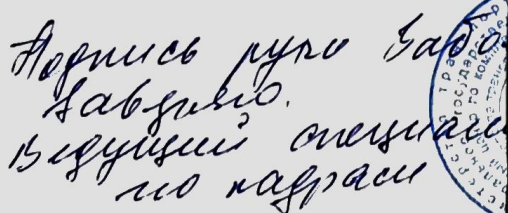 Подпись руки Забо
заверяю.
Ведущий специал
по кадрам